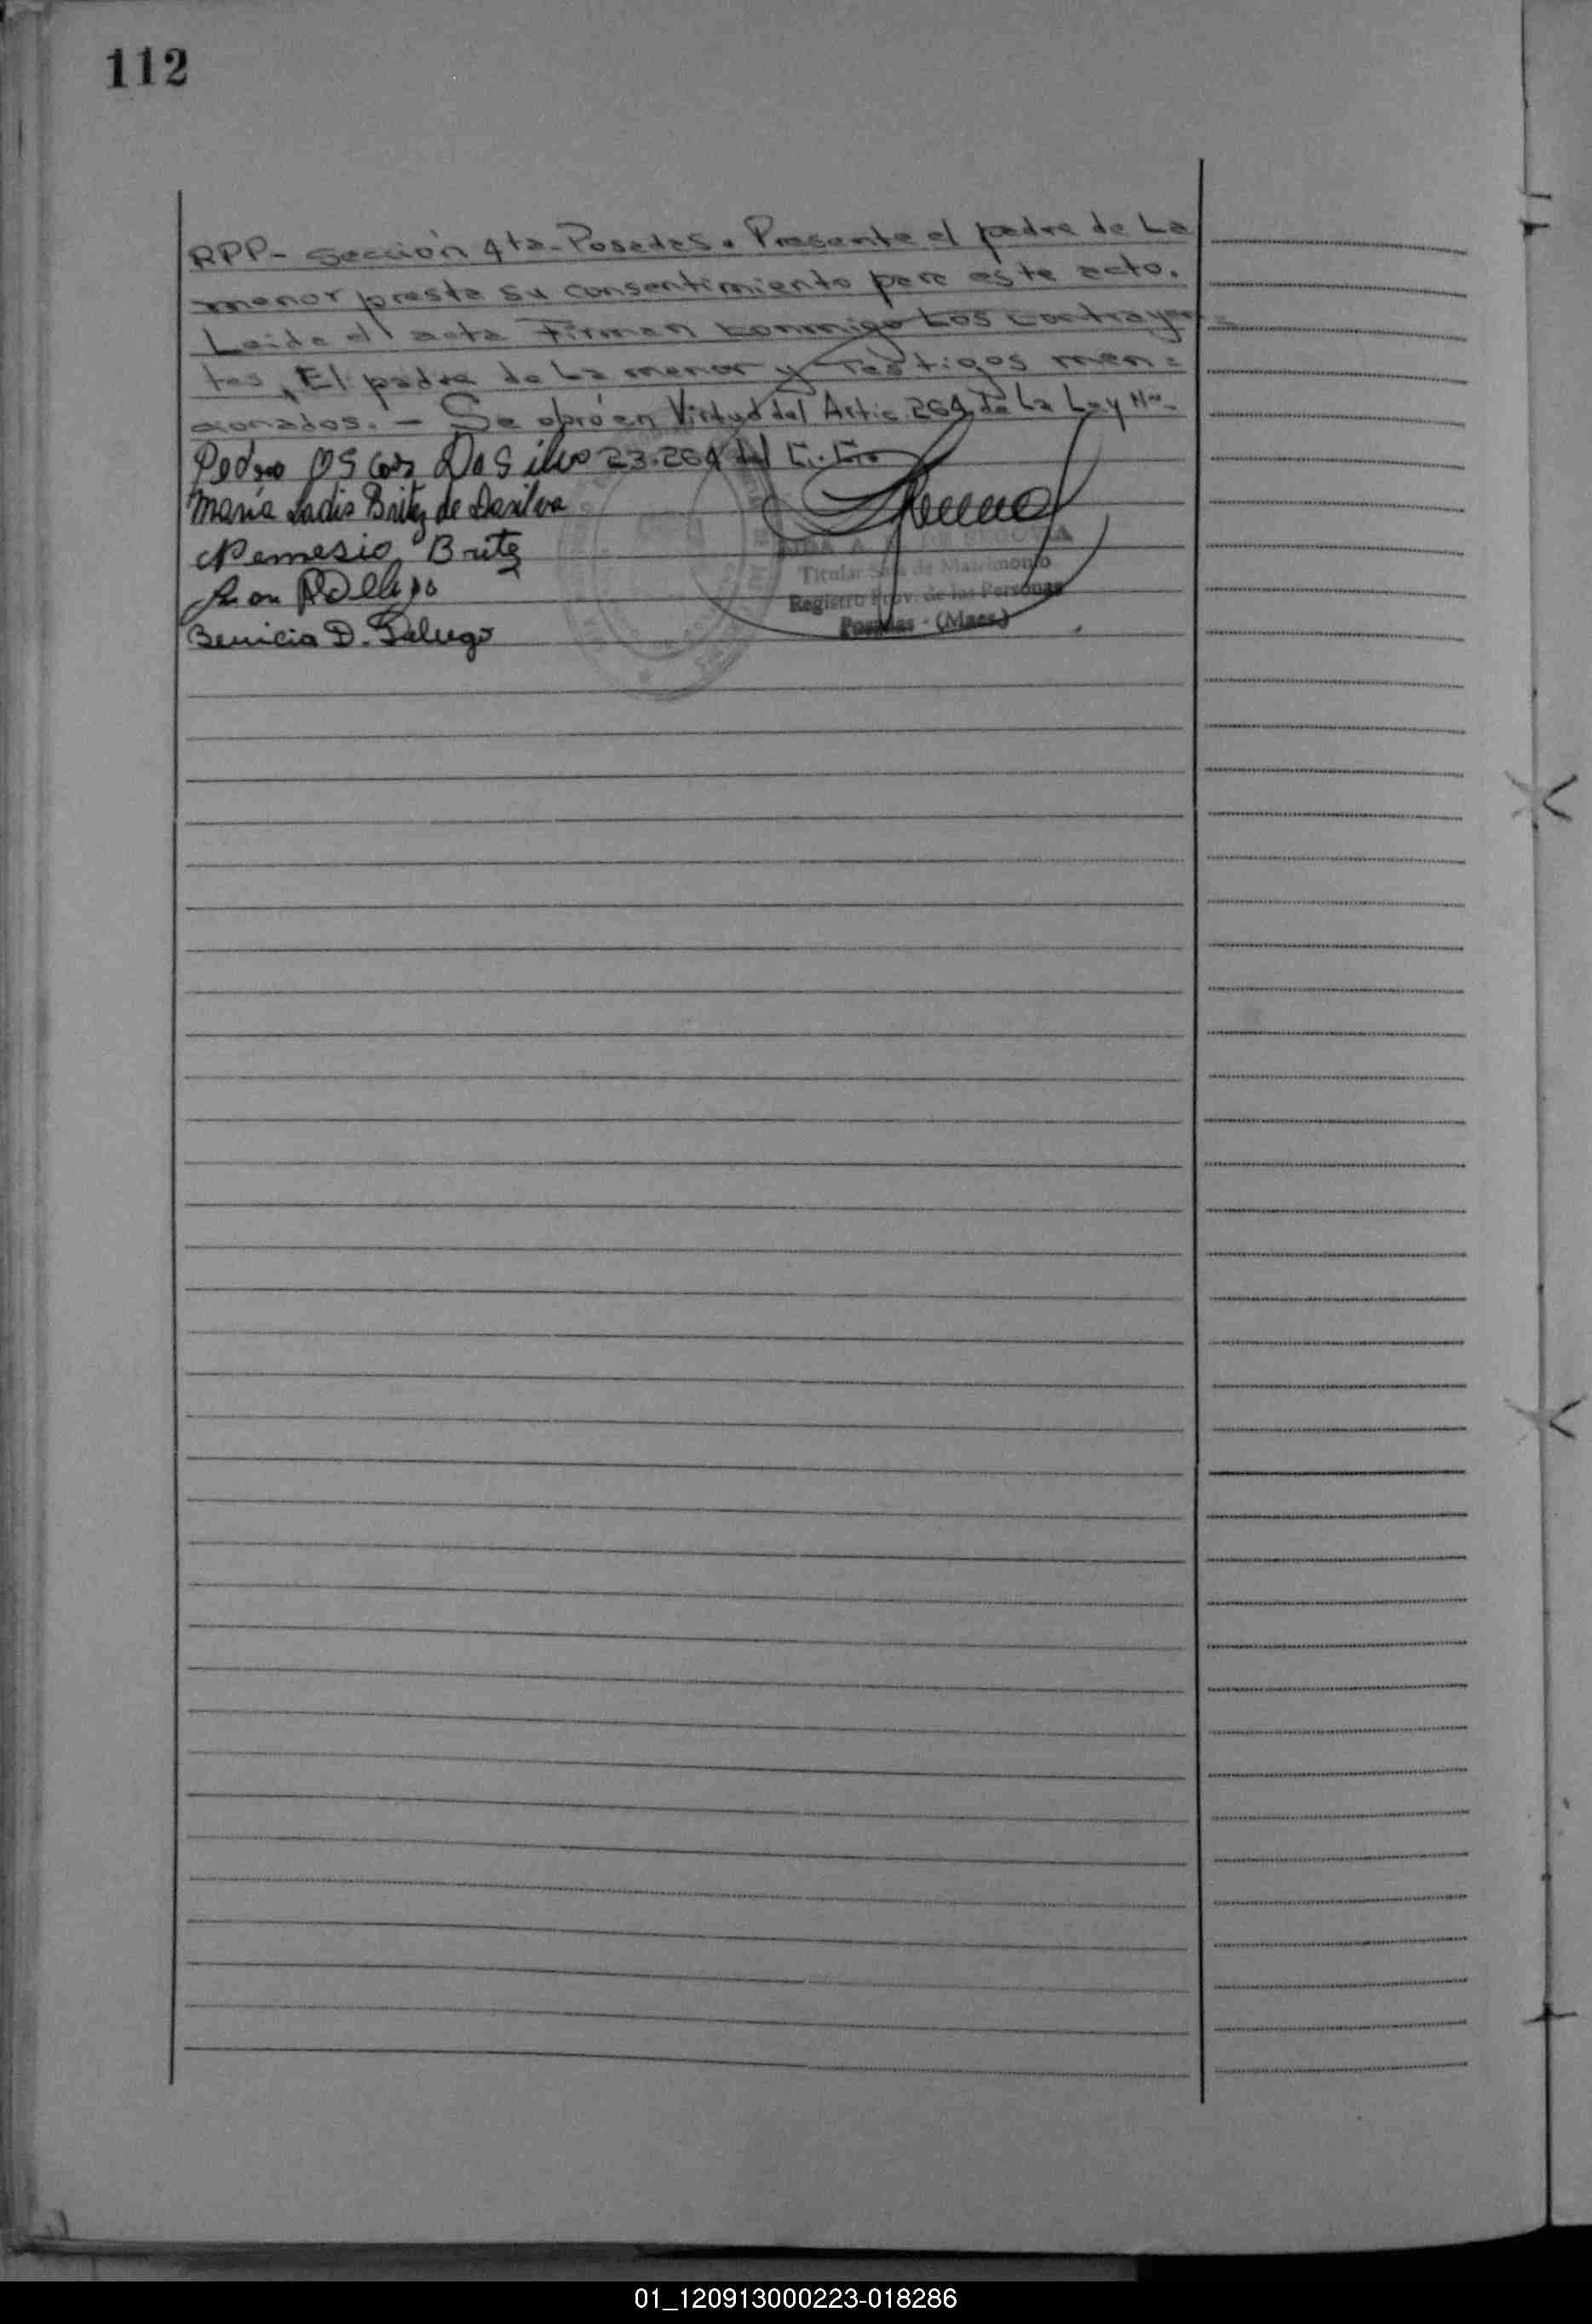 112
RPP- sección 4ta- Posadas. Presente el padre de La
menor presta su consentimiento para este acto.
Leida el acta Firman conmigo Los contrayen
tes, El padre de La menor y Testigos men=
cionados. - Se obró en Virtud del Artic. 264 de La Ley Nº.
Pedro Oscar Da Silva 23.264 del C.
María Ladis Britez de Dasilva
Nemesio Britez
Juan
Benicia D.
Titular Sala de Matrimonio
Registro Prov. de las Personas
Posadas - (Mnes.)
01_120913000223-018286